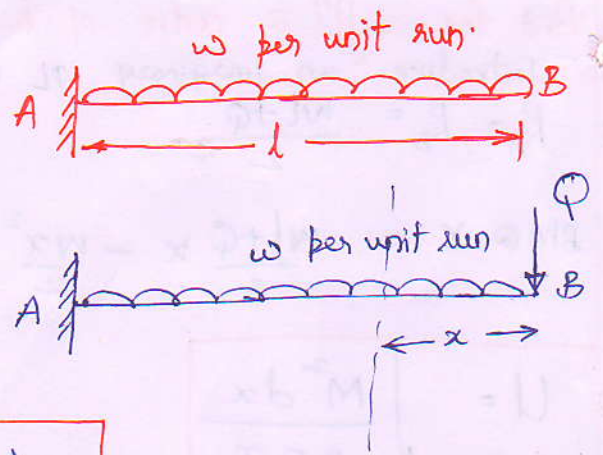 w per unit run.
A B
l
Q
w per unit run
A B
x
U = M² dx